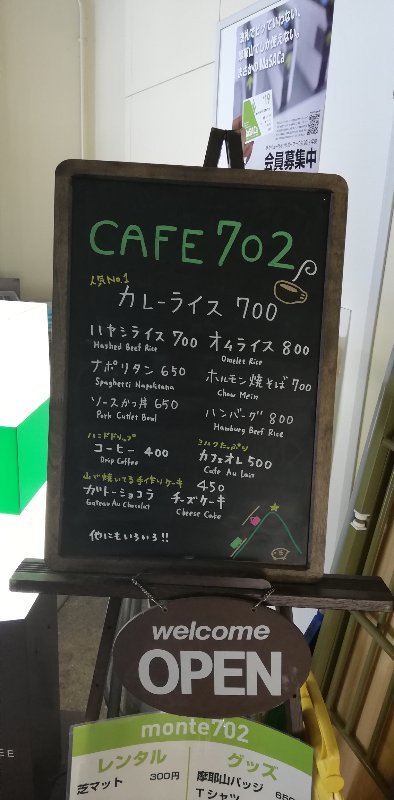 改札でピッていわない、
摩耶山でしか使えない。
まさかの MaSACa
会員募集中
CAFE 702
人気No.1
カレーライス 700
ハヤシライス 700 オムライス 800
Hashed Beef Rice Omelet Rice
ナポリタン 650 ホルモン焼そば 700
Spaghetti Napolitana Chow Mein
ソースかつ丼 650 ハンバーグ 800
Pork Cutlet Bowl Hamburg Beef Rice
ハンドドリップ ミルクたっぷり
コーヒー 400 カフェオレ 500
Drip Coffee Cafe Au Lait
山で焼いてる手作りケーキ 450
ガトーショコラ チーズケーキ
Gateau Au Chocolat Cheese Cake
他にもいろいろ!!
welcome
OPEN
monte702
レンタル グッズ
芝マット 300円 摩耶山バッジ
Tシャツ 650